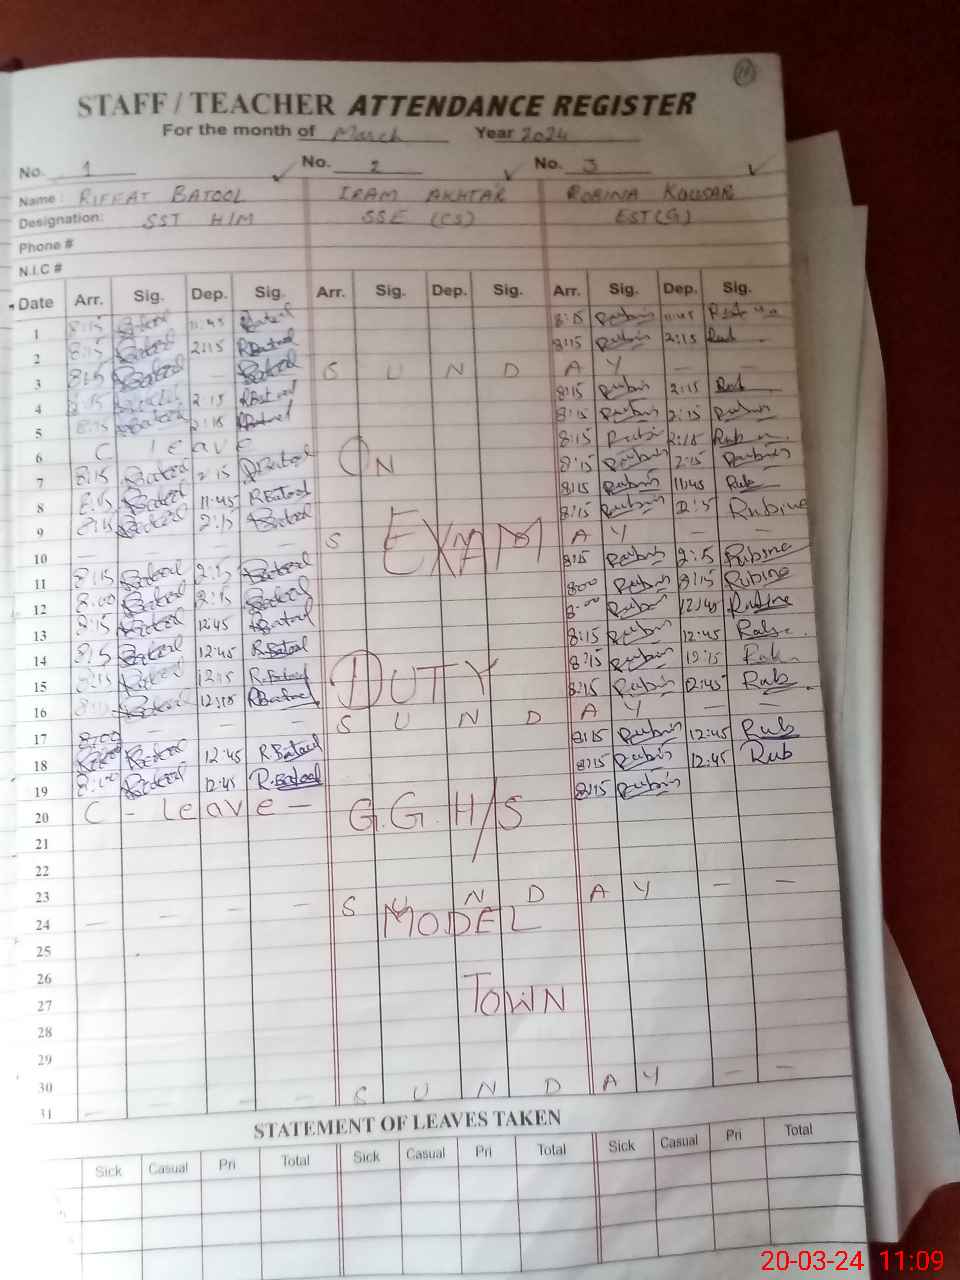 STAFF / TEACHER ATTENDANCE REGISTER
For the month of March Year 2024
No. 1 No. 2 No. 3
Name : RIFFAT BATOOL IRAM AKHTAR ROBINA KOUSAR
Designation: SST H/M SSE (CS) EST(G)
Phone #
N.I.C #
Date Arr. Sig. Dep. Sig. Arr. Sig. Dep. Sig. Arr. Sig. Dep. Sig.
1 8:15 Batool 11:45 Batool 8:15 Rubin 11:45
2 8:15 Batool 2:15 RBatool 8:15 Rubin 2:15 Rub
3 8:15 Batool - Batool S U N D A Y - -
4 8:15 Batool 2:15 RBatool 8:15 Rubin 2:15 Rub
5 8:15 Batool 2:15 RBatool 8:15 Rubin 2:15 Rubin
6 C leave 8:15 Rubin 2:15 Rub
7 8:15 Batool 2:15 RBatool ON 8:15 Rubin 2:15 Rubin
8 8:15 Batool 11:45 R.Batool 8:15 Rubin 11:45 Rub
9 8:15 Batool 2:15 Batool 8:15 Rubin 2:15 Rubine
10 - - - - S EXAM A Y - -
11 8:15 Batool 2:15 Batool 8:15 Rubin 2:15 Rubine
12 8:00 Batool 2:15 Batool 8:00 Rubin 2:15 Rubine
13 8:15 Batool 12:45 Batool 8:00 Rubin 12:45 Rubine
14 8:15 Batool 12:45 R.Batool 8:15 Rubin 12:45
15 8:15 Batool 12:15 R.Batool DUTY 8:15 Rubin 12:15
16 Batool 12:15 RBatool 8:15 Rubin 12:45 Rub
17 - - - S U N D A Y - -
18 8:00 Batool 12:45 R Batool 8:15 Rubin 12:45 Rub
19 8:00 Batool 12:45 R.Batool 8:15 Rubin 12:45 Rub
20 C - leave - G.G.H/S 8:15 Rubin
21
22
23
24 - - - - S U N D A Y - -
MODEL
25
26
27 TOWN
28
29
30
31 - - - - S U N D A Y - -
STATEMENT OF LEAVES TAKEN
Sick Casual Pri Total Sick Casual Pri Total Sick Casual Pri Total
20-03-24 11:09